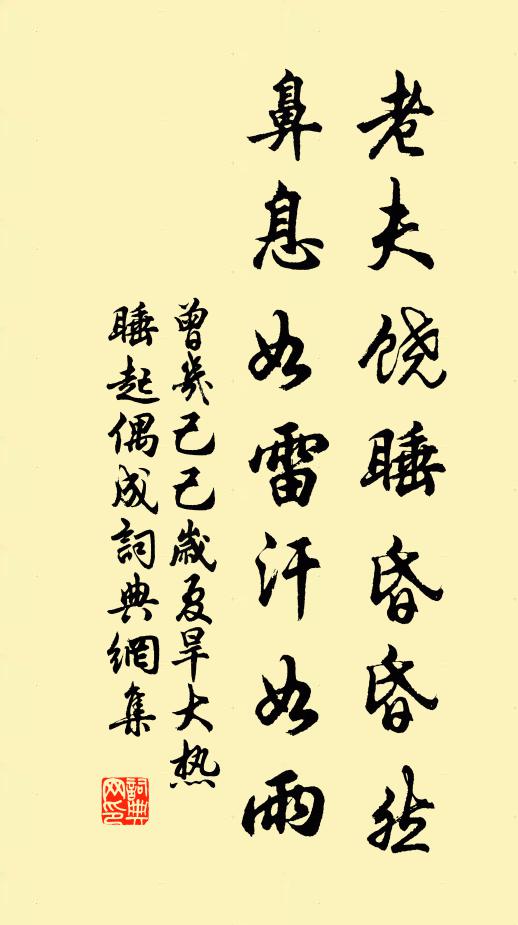 老夫饶睡昏昏然
鼻息如雷汗如雨
曾幾己巳歲夏旱大热
睡起偶成詞典網集
詞典網印